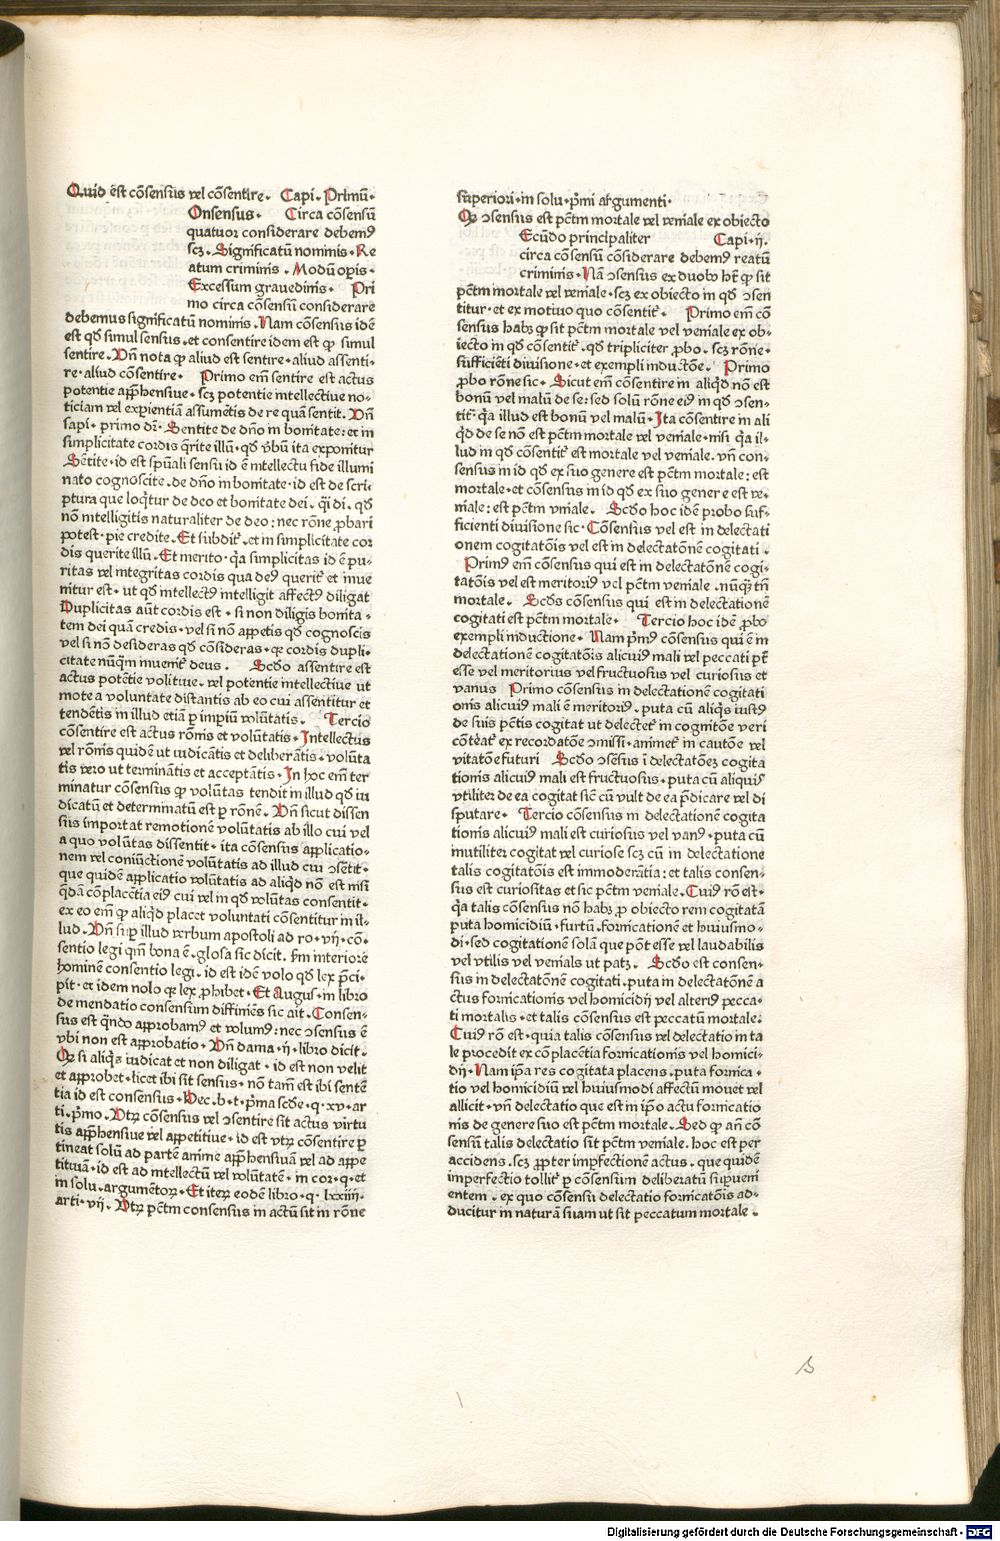 Quid est cõsensus vel cõsentire. Capi. Primũ.
Onsensus. Circa cõsensũ
quatuor considerare debemꝰ
scꝫ. Significatũ nominis. Re
atum criminis. Modũ oꝑis.
Excessum grauedinis. Pri
mo circa cõsensũ considerare
debemus significatũ nominis. Nam cõsensus idē
est qď simul sensus. et consentire idem est ꝙ simul
sentire. Vñ nota ꝙ aliud est sentire. aliud assenti-
re. aliud cõsentire. Primo em̄ sentire est actus
potentie apph̄ensiue. scꝫ potentie intellectiue no-
ticiam vel exꝑientiã assumẽtis de re quã sentit. Vñ
sapi. primo dr̄. Sentite de dño in bonitate: et in
simplicitate cordis q̄rite illũ. qď ṽbũ ita exponitur
Sētite. id est spũali sensu id ē intellectu fide illumi
nato cognoscite. de dño in bonitate. id est de scri-
ptura que loq̄tur de deo et bonitate dei. q̈i di. qď
nõ intelligitis naturaliter de deo: nec rõne ꝓbari
potest. pie credite. Et subdit̄. et in simplicitate cor
dis querite illũ. Et merito. q̈a simplicitas id ē pu-
ritas vel integritas cordis qua deꝰ querit̄ et inue
nitur est. ut qď intellectꝰ intelligit affectꝰ diligat
Duplicitas aũt cordis est. si non diligis bonita-
tem dei quã credis. vel si nõ appetis qď cognoscis
vel si nõ desideras qď cõsideras. qꝛ cordis dupli-
citate nũq̈m inuenit̄ deus. Scďo assentire est
actus potẽtie volitiue. vel potentie intellectiue ut
mote a voluntate distantis ab eo cui assentitur et
tendẽtis in illud etiã ꝑ impiũ volũtatis. Tercio
cõsentire est actus rõnis et volũtatis. Intellectus
vel rõnis quidē ut iudicãtis et deliberãtis. volũta
tis vero ut terminãtis et acceptãtis. In hoc em̄ ter
minatur cõsensus ꝙ volũtas tendit in illud qď iu
dicatũ et determinatũ est ꝑ rõnē. Vñ sicut dissen
sus importat remotionē volũtatis ab illo cui vel
a quo volũtas dissentit. ita cõsensus applicatio-
nem vel coniũctionē volũtatis ad illud cui ↄsētit.
que quidē applicatio volũtatis ad aliq̈d nõ est nisi
q̈dã cõplacẽtia eiꝰ cui vel in qď volũtas consentit.
ex eo em̄ ꝙ aliq̈d placet voluntati cõsentitur in il-
lud. Vñ suꝑ illud verbum apostoli ad ro. vij. cõ-
sentio legi qm̄ bona ē. glosa sic dicit. Fm interiorē
hominē consentio legi. id est idē volo qď lex p̄ci-
pit. et idem nolo qď lex ꝓhibet. Et Augus. in libro
de mendatio consensum diffiniēs sic ait. Consen-
sus est q̄ndo approbamꝰ et volumꝰ: nec ↄsensus ē
vbi non est approbatio. Vñ dama. ij. libro dicit.
Qꝫ si aliq̈s iudicat et non diligat. id est non velit
et approbet. licet ibi sit sensus. nõ tam̄ est ibi sentē
tia id est consensus. Hec. b. t. p̄ma scďe. q. xv. ar
ti. p̄mo. Vtꝝ cõsensus vel ↄsentire sit actus virtu
tis apph̄ensiue vel appetitiue. id est vtꝝ cõsentire ꝑ
tineat solũ ad partē anime apph̄ensiuã vel ad appe
titiuã. id est ad intellectũ vel volũtatē. in cor. q. et
in solu. argumẽtoꝝ. Et iteꝝ eodē libro. q. lxxiiij.
arti. vij. Vtꝝ pc̄tm consensus in actũ sit in rõne
superiori. in solu. p̄mi argumenti.
Qꝫ ↄsensus est pc̄tm mortale vel veniale ex obiecto
Ecũdo principaliter Capi. ij.
circa cõsensũ cõsiderare debemꝰ reatũ
criminis. Nã ↄsensus ex duobꝰ hꝫ ꝙ sit
pc̄tm mortale vel veniale. scꝫ ex obiecto in qď ↄsen
titur. et ex motiuo quo cõsentit̄. Primo em̄ cõ
sensus habꝫ ꝙ sit pc̄tm mortale vel veniale ex ob-
iecto in qď cõsentit̄. qď tripliciter ꝓbo. scꝫ rõne.
sufficiẽti diuisione. et exempli inductõe. Primo
ꝓbo rõne sic. Sicut em̄ cõsentire in aliq̈d nõ est
bonũ vel malũ de se: sed solũ rõne eiꝰ in qď ↄsen-
tit̄. q̈a illud est bonũ vel malũ. Ita cõsentire in ali
q̈d de se nõ est pc̄tm mortale vel veniale. nisi q̈a il-
lud in qď cõsentit̄ est mortale vel veniale. vñ con-
sensus in id qď ex suo genere est pc̄tm mortale: est
mortale. et cõsensus in id qď ex suo genere est ve-
niale: est pc̄tm vniale. Scďo hoc idē probo suf-
ficienti diuisione sic. Cõsensus vel est in delectati
onem cogitatõis vel est in delectatõnē cogitati.
Primꝰ em̄ cõsensus qui est in delectatõnē cogi-
tatõis vel est meritoriꝰ vel pc̄tm veniale. nũq̈ꝫ tñ
mortale. Scďs cõsensus qui est in delectationē
cogitati est pc̄tm mortale. Tercio hoc idē ꝓbo
exempli inductione. Nam p̄mꝰ cõsensus qui ē in
delectationē cogitatõis alicuiꝰ mali vel peccati pt̄
esse vel meritorius vel fructuosus vel curiosus et
vanus Primo cõsensus in delectationē cogitati
onis alicuiꝰ mali ē meritoriꝰ. puta cũ aliq̈s iustꝰ
de suis pc̄tis cogitat ut delectet̄ in cognitõe veri
cõterat̄ ex recordatõe ↄmissi. animet̄ in cautõe vel
vitatõe futuri Scďo ↄsēsus ī delectatõeꝫ cogita
tionis alicuiꝰ mali est fructuosus. puta cũ aliquis
vtiliter de ea cogitat sic̄ cũ vult de ea p̄dicare vel di
sputare. Tercio cõsensus in delectationē cogita
tionis alicuiꝰ mali est curiosus vel vanꝰ. puta cũ
inutiliter cogitat vel curiose scꝫ cũ in delectatione
talis cogitatõis est immoderãtia: et talis consen-
sus est curiositas et sic pc̄tm veniale. Cuiꝰ rõ est.
q̈a talis cõsensus nõ habꝫ ꝓ obiecto rem cogitatã
puta homicidiũ. furtũ. fornicationē et huiusmo-
di. sed cogitationē solã que põt esse vel laudabilis
vel vtilis vel venialis ut patꝫ. Scďo est consen-
sus in delectatõnē cogitati. puta in delectatõnē a
ctus fornicationis vel homicidij vel alteriꝰ pecca-
ti mortalis. et talis cõsensus est peccatũ mortale.
Cuiꝰ rõ est. quia talis cõsensus vel delectatio in ta
le procedit ex cõplacentia fornicationis vel homici-
dij. Nam ip̄a res cogitata placens. puta fornica-
tio vel homicidiũ vel huiusmodi affectũ mouet vel
allicit. vñ delectatio que est in ip̄o actu fornicatio
nis de genere suo est pc̄tm mortale. Sed ꝙ añ cõ
sensũ talis delectatio sit pc̄tm veniale. hoc est per
accidens. scꝫ ꝓpter imꝑfectionē actus. que quidē
imperfectio tollit̄ ꝑ cõsensum deliberatũ superueni
entem. ex quo cõsensu delectatio fornicatõis ad-
ducitur in naturã suam ut sit peccatum mortale.
Digitalisierung gefördert durch die Deutsche Forschungsgemeinschaft - DFG